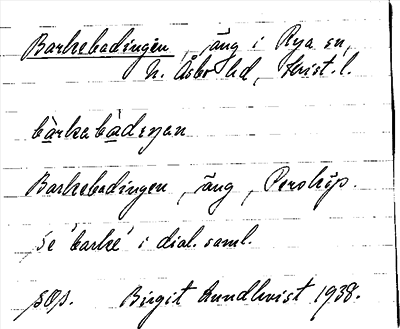 Barkebadingen, äng i Rya sn,
N. Åsbo hd, Krist. l.
bàrkabàdeŋan
Barkebadingen, äng, Perstorp.
Se 'barke' i dial. saml.
Birgit Rundkvist 1938.